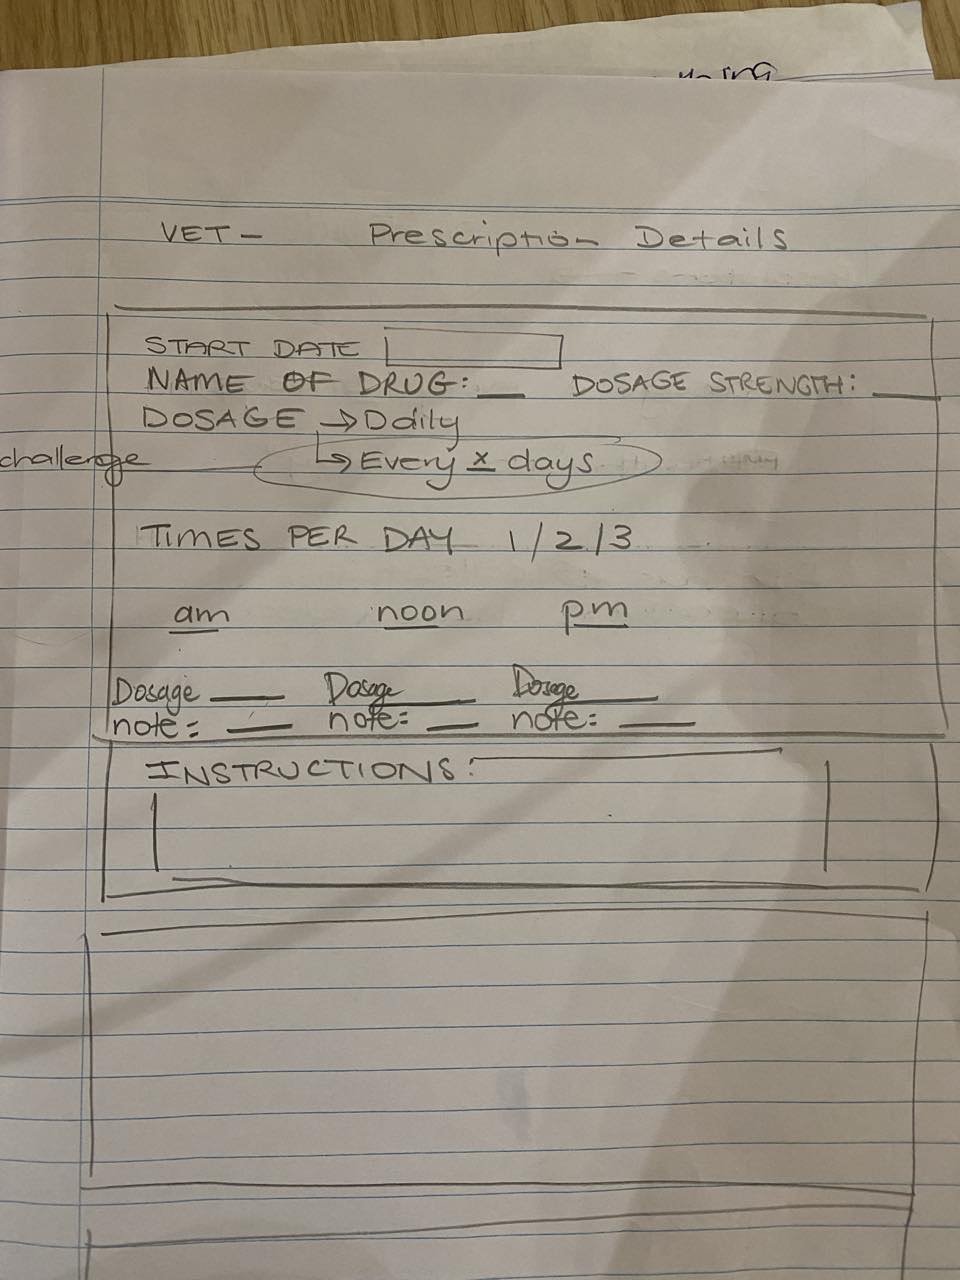 VET - Prescription Details
START DATE
NAME OF DRUG: __ DOSAGE STRENGTH: __
DOSAGE → Daily
challenge ↳ Every x days
TIMES PER DAY 1/2/3
am noon pm
Dosage __ Dosage __ Dosage __
note = __ note = __ note: __
INSTRUCTIONS: